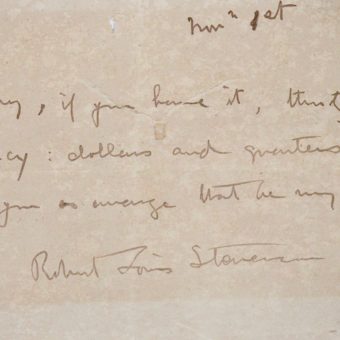 1st
, if you have it, thirty
cy : dollars and quarters
you as arrange that he may
Robert Louis Stevenson